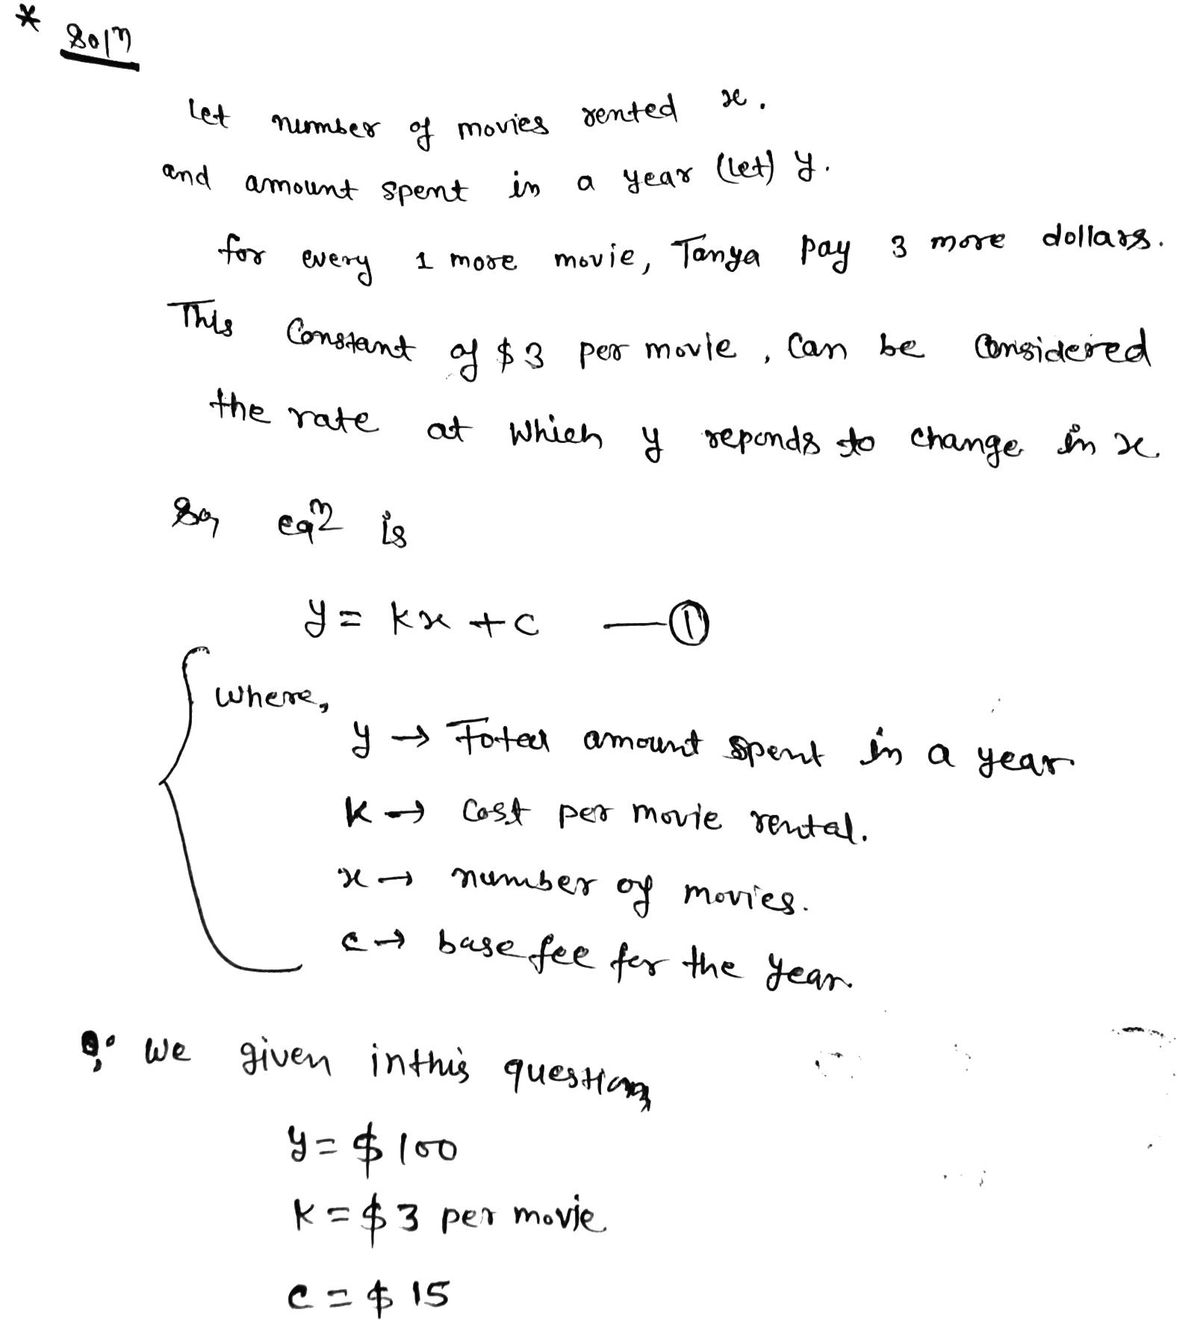 * Solⁿ
Let number of movies rented x.
and amount spent in a year (let) y.
for every 1 more movie, Tanya pay 3 more dollars.
This Constant of $3 per movie, Can be Considered
the rate at which y reponds to change in x.
So, eqⁿ is
y = kx + c —①
where,
y → Total amount spent in a year
k → Cost per movie rental.
x → number of movies.
c → base fee for the year.
we given in this question,
y = $100
k = $3 per movie
c = $15